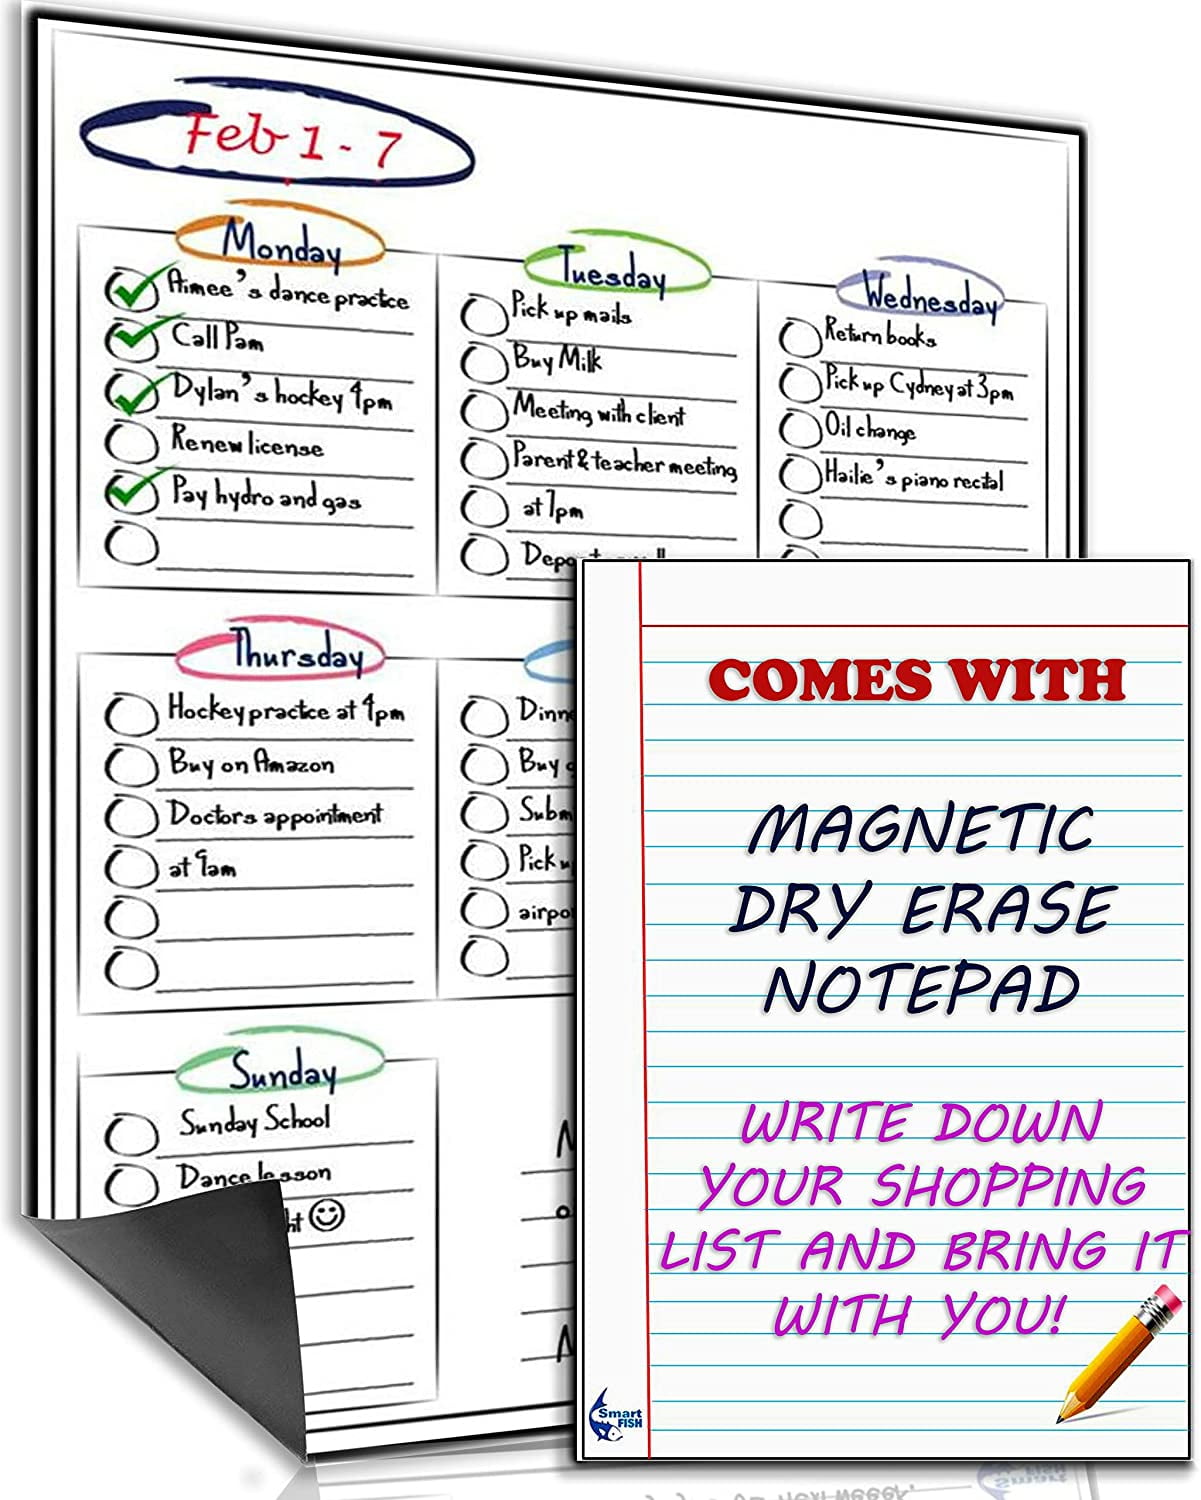 Feb 1 - 7
Monday
Aimee's dance practice
Call Pam
Dylan's hockey 4pm
Renew license
Pay hydro and gas
Tuesday
Pick up mails
Buy Milk
Meeting with client
Parent & teacher meeting
at 7pm
Wednesday
Return books
Pick up Cydney at 3pm
Oil change
Hailie's piano recital
Thursday
Hockey practice at 4pm
Buy on Amazon
Doctors appointment
at 9am
Buy
Pick
Sunday
Sunday School
Dance lesson
COMES WITH
MAGNETIC
DRY ERASE
NOTEPAD
WRITE DOWN
YOUR SHOPPING
LIST AND BRING IT
WITH YOU!
Smart
FISH